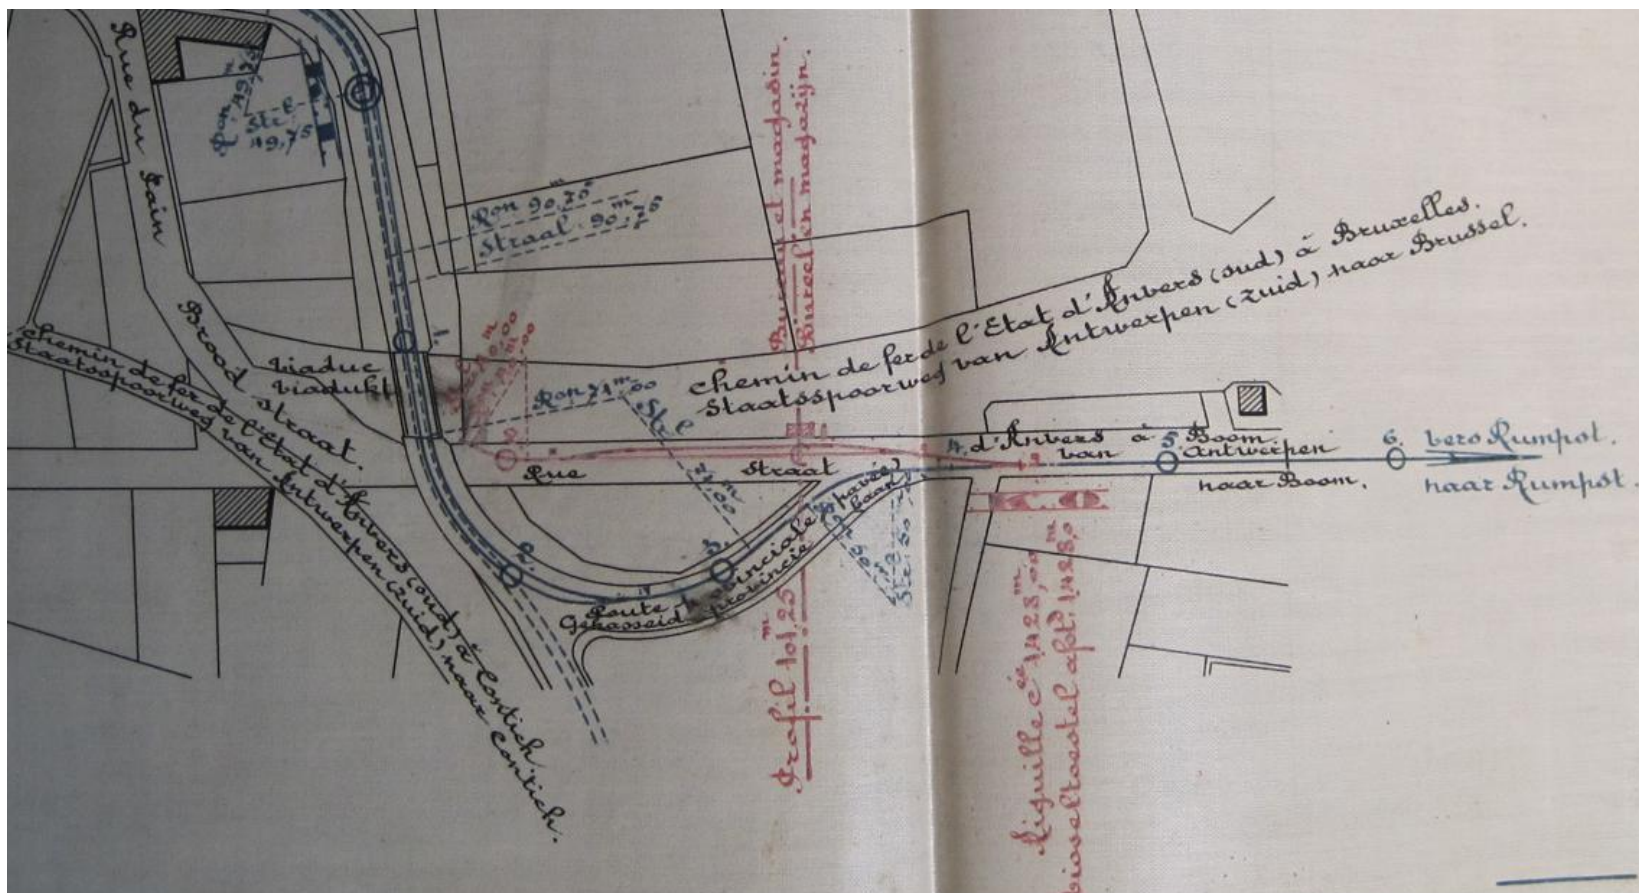 Rue du Pain
Brood straat.
Ron 49,75 m
Str. 49,75
Ron 90,75 m
Straal. 90,75 m
Bureau et magasin.
Bureel en magazijn.
chemin de fer de l'Etat d'Anvers (sud) à Bruxelles.
Staatsspoorweg van Antwerpen (zuid) naar Brussel.
viaduc
viadukt
1.
Ron 71 m 00
Str. 71, m 00
chemin de fer de l'Etat d'Anvers (sud) à Contich.
Staatsspoorweg van Antwerpen (zuid) naar Contich.
Rue
Straat
4. d'Anvers à Boom
van Antwerpen
naar Boom.
5.
6.
vers Rumpst.
naar Rumpst.
2.
3.
Route provinciale (pavée)
Gekasseid provincie baan
50 m
Str. 50 m
Profil 101,25 m
Aiguille c ée 1,428, m 00
wisseltoestel afst. 1,428,0 m